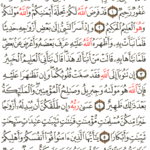 غَفُورٌ رَّحِيمٌ ۝ قَدْ فَرَضَ ٱللَّهُ لَكُمْ تَحِلَّةَ أَيْمَٰنِكُمْ وَٱللَّهُ مَوْلَىٰكُمْ
وَهُوَ ٱلْعَلِيمُ ٱلْحَكِيمُ ۝ وَإِذْ أَسَرَّ ٱلنَّبِىُّ إِلَىٰ بَعْضِ أَزْوَٰجِهِۦ حَدِيثًا
فَلَمَّا نَبَّأَتْ بِهِۦ وَأَظْهَرَهُ ٱللَّهُ عَلَيْهِ عَرَّفَ بَعْضَهُۥ وَأَعْرَضَ عَنۢ بَعْضٍ
فَلَمَّا نَبَّأَهَا بِهِۦ قَالَتْ مَنْ أَنۢبَأَكَ هَٰذَا قَالَ نَبَّأَنِىَ ٱلْعَلِيمُ ٱلْخَبِيرُ
۝ إِن تَتُوبَآ إِلَى ٱللَّهِ فَقَدْ صَغَتْ قُلُوبُكُمَا وَإِن تَظَٰهَرَا عَلَيْهِ
فَإِنَّ ٱللَّهَ هُوَ مَوْلَىٰهُ وَجِبْرِيلُ وَصَٰلِحُ ٱلْمُؤْمِنِينَ وَٱلْمَلَٰٓئِكَةُ
بَعْدَ ذَٰلِكَ ظَهِيرٌ ۝ عَسَىٰ رَبُّهُۥٓ إِن طَلَّقَكُنَّ أَن يُبْدِلَهُۥٓ أَزْوَٰجًا